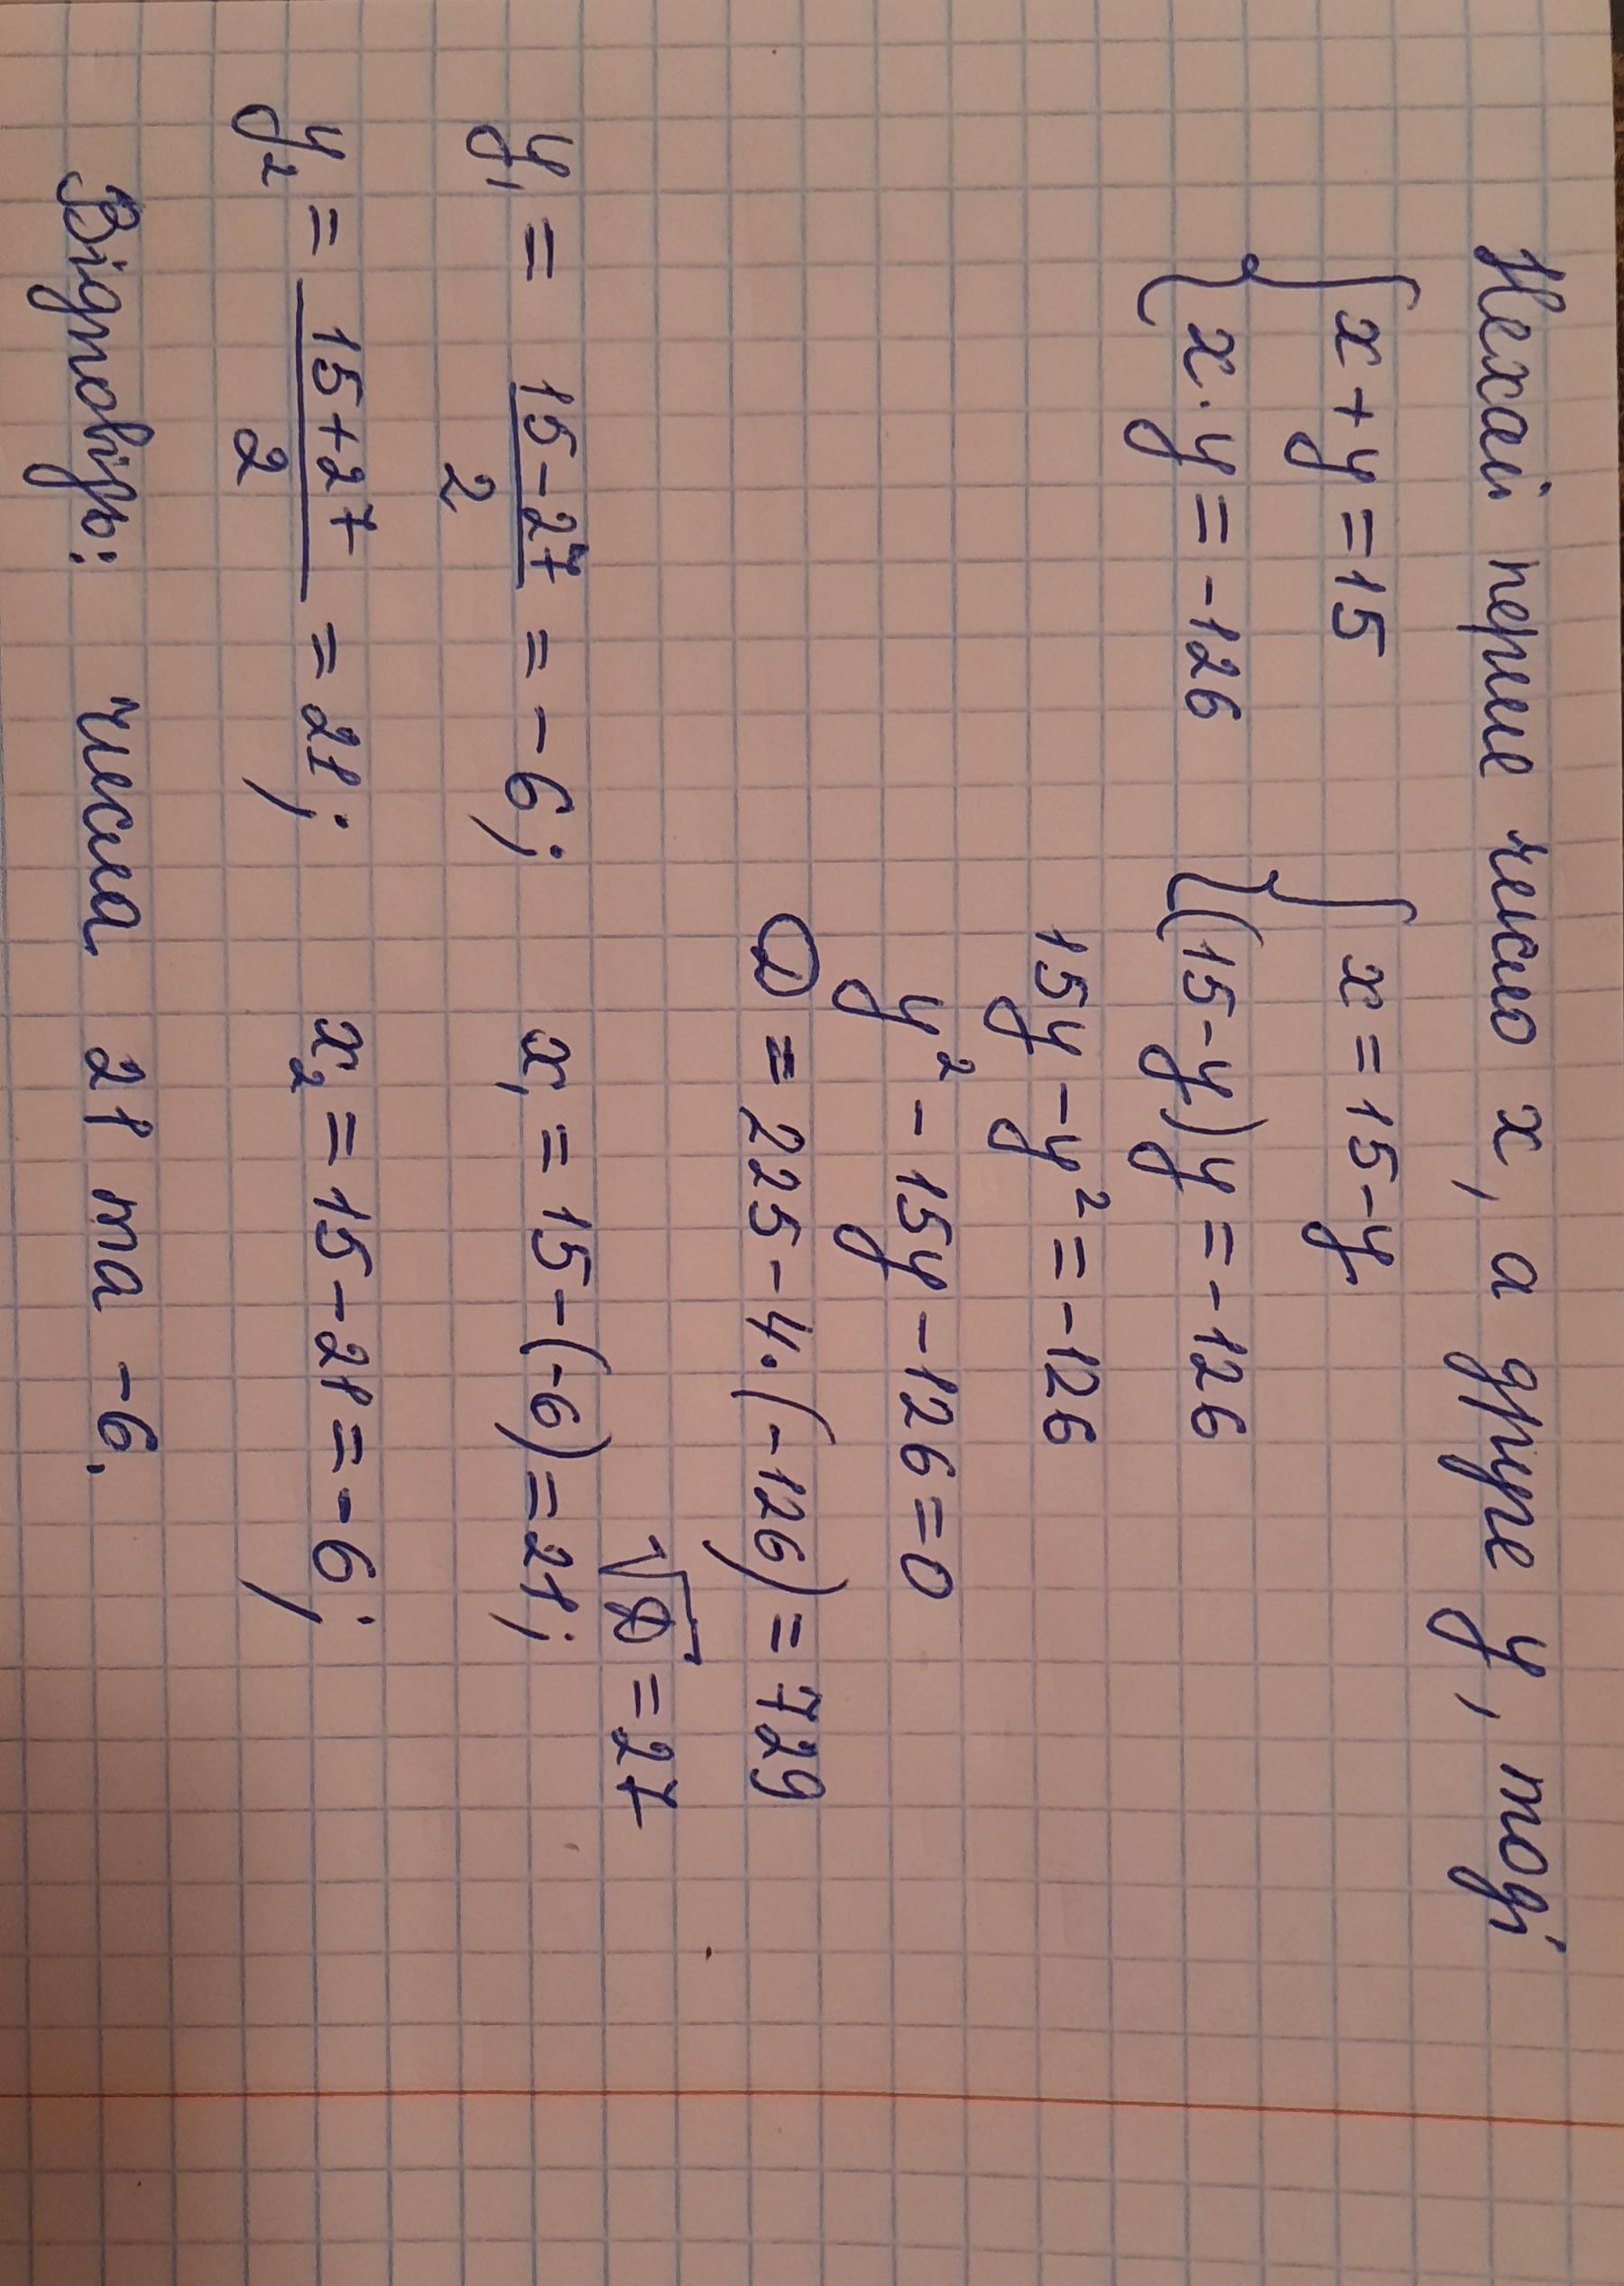 Нехай перше число x, а друге y, тоді
{ x + y = 15 { x = 15 - y
{ x · y = -126 { (15 - y) y = -126
15y - y² = -126
y² - 15y - 126 = 0
D = 225 - 4 · (-126) = 729
√D = 27
y₁ = (15 - 27)/2 = -6; x₁ = 15 - (-6) = 21;
y₂ = (15 + 27)/2 = 21; x₂ = 15 - 21 = -6;
Відповідь: числа 21 та -6.